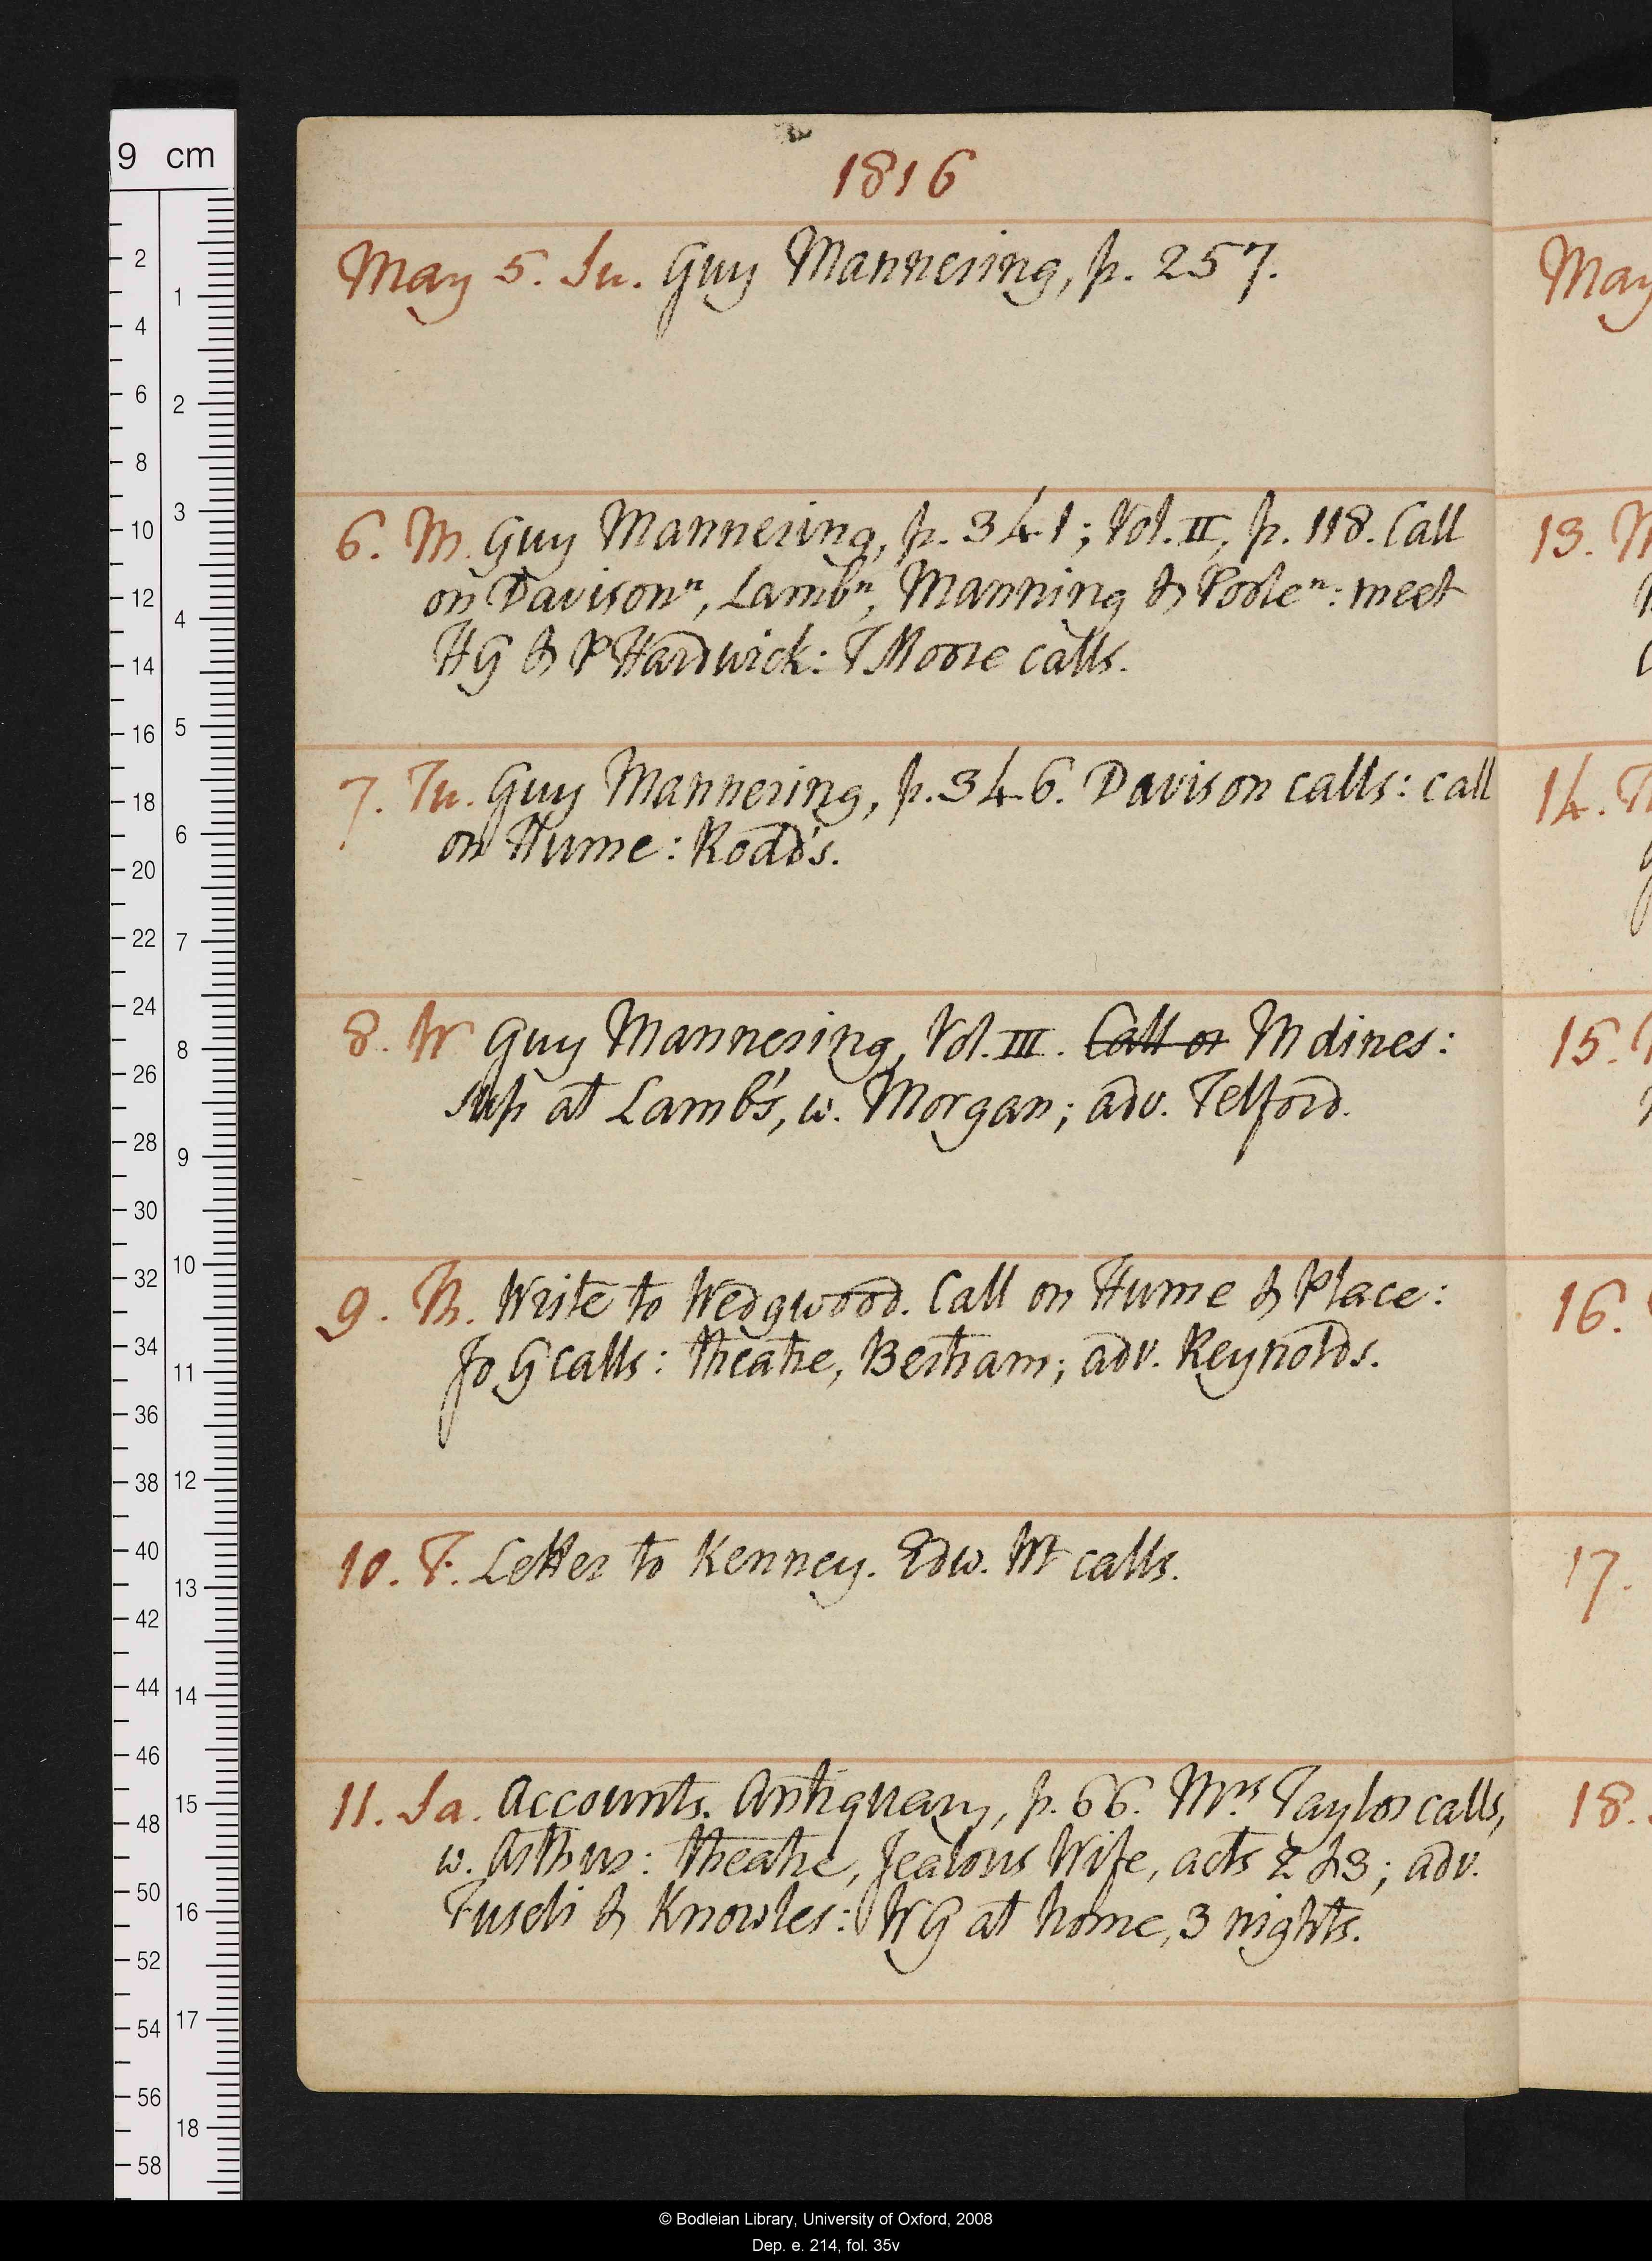 1816
May 5. Su. Guy Mannering, p. 257.
6. M. Guy Mannering, p. 341; Vol. II, p. 118. Call
on Davisonⁿ, Lambⁿ, Manning & Pooleⁿ: meet
HG & P Hardwick: T Moore calls.
7. Tu. Guy Mannering, p. 346. Davison calls: call
on Hume: Rodd's.
8. W Guy Mannering, Vol. III. Call on M dines:
sup at Lamb's, w. Morgan; adv. Telford.
9. Th. Write to Wedgwood. Call on Hume & Place:
Jo G calls: theatre, Bertram; adv. Reynolds.
10. F. Letter to Kenney. Edw. Wt calls.
11. Sa. Accounts. Antiquary, p. 66. Mrs Taylor calls,
w. Arthur: theatre, Jealous Wife, acts 2 & 3; adv.
Fuseli & Knowles: WG at home, 3 nights.
May
13.
14.
15.
16.
17.
18.
9 cm
2
4
6
8
10
12
14
16
18
20
22
24
26
28
30
32
34
36
38
40
42
44
46
48
50
52
54
56
58
1
2
3
4
5
6
7
8
9
10
11
12
13
14
15
16
17
18
© Bodleian Library, University of Oxford, 2008
Dep. e. 214, fol. 35v